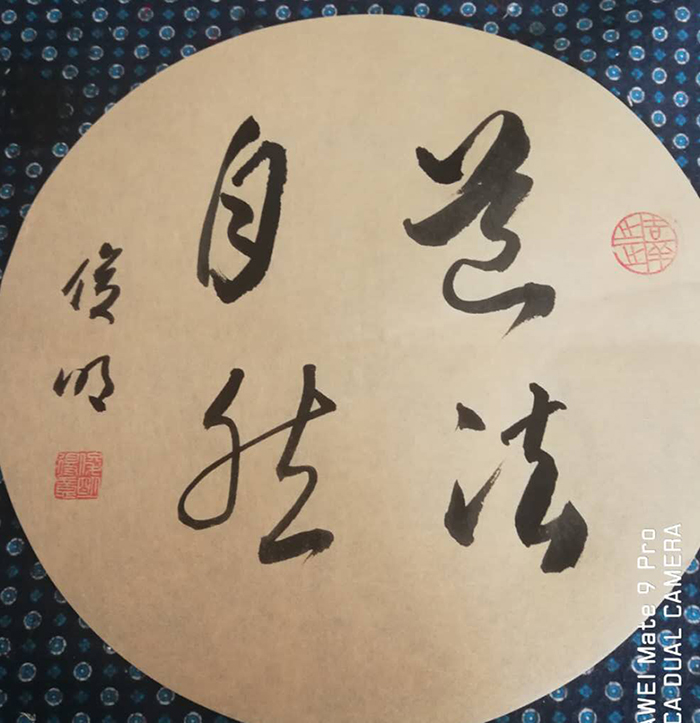 道法
自然
俊明
WEI Mate 9 Pro
CA DUAL CAMERA